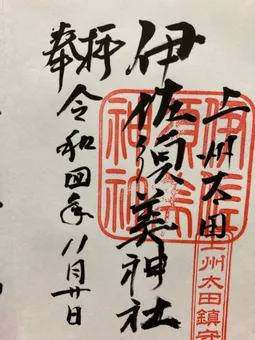 上州太田
伊佐須美神社
奉拝
令和四年八月廿日
伊佐須美神社
上州太田鎮守